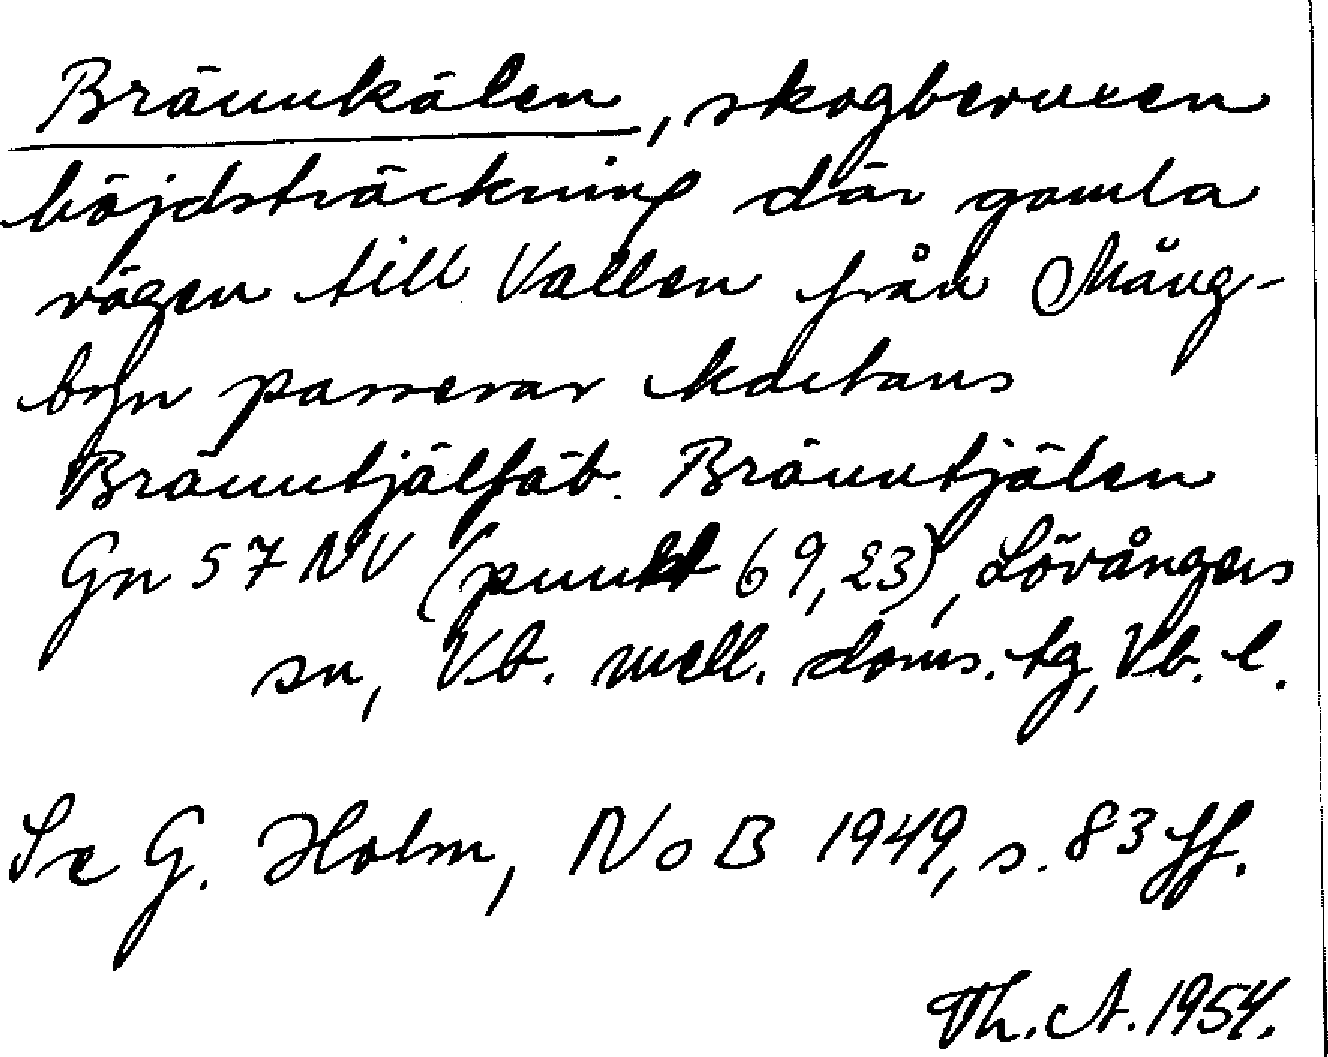 Brännkälen, skogbevuxen
höjdsträckning där gamla
vägen till Vallen från Mång-
byn passerar kartans
Bränntjälfäb. Bränntjälen
Gn 57 NV (punkt 69,23), Lövångers
sn, Vb. mell. doms. tg, Vb. l.
Se G. Holm, NoB 1949, s. 83 ff.
Th. A. 1954.